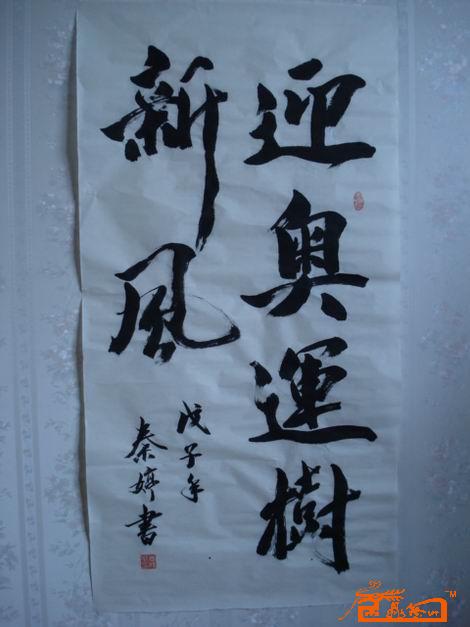 迎奥運樹
新風
戊子年
秦婷書